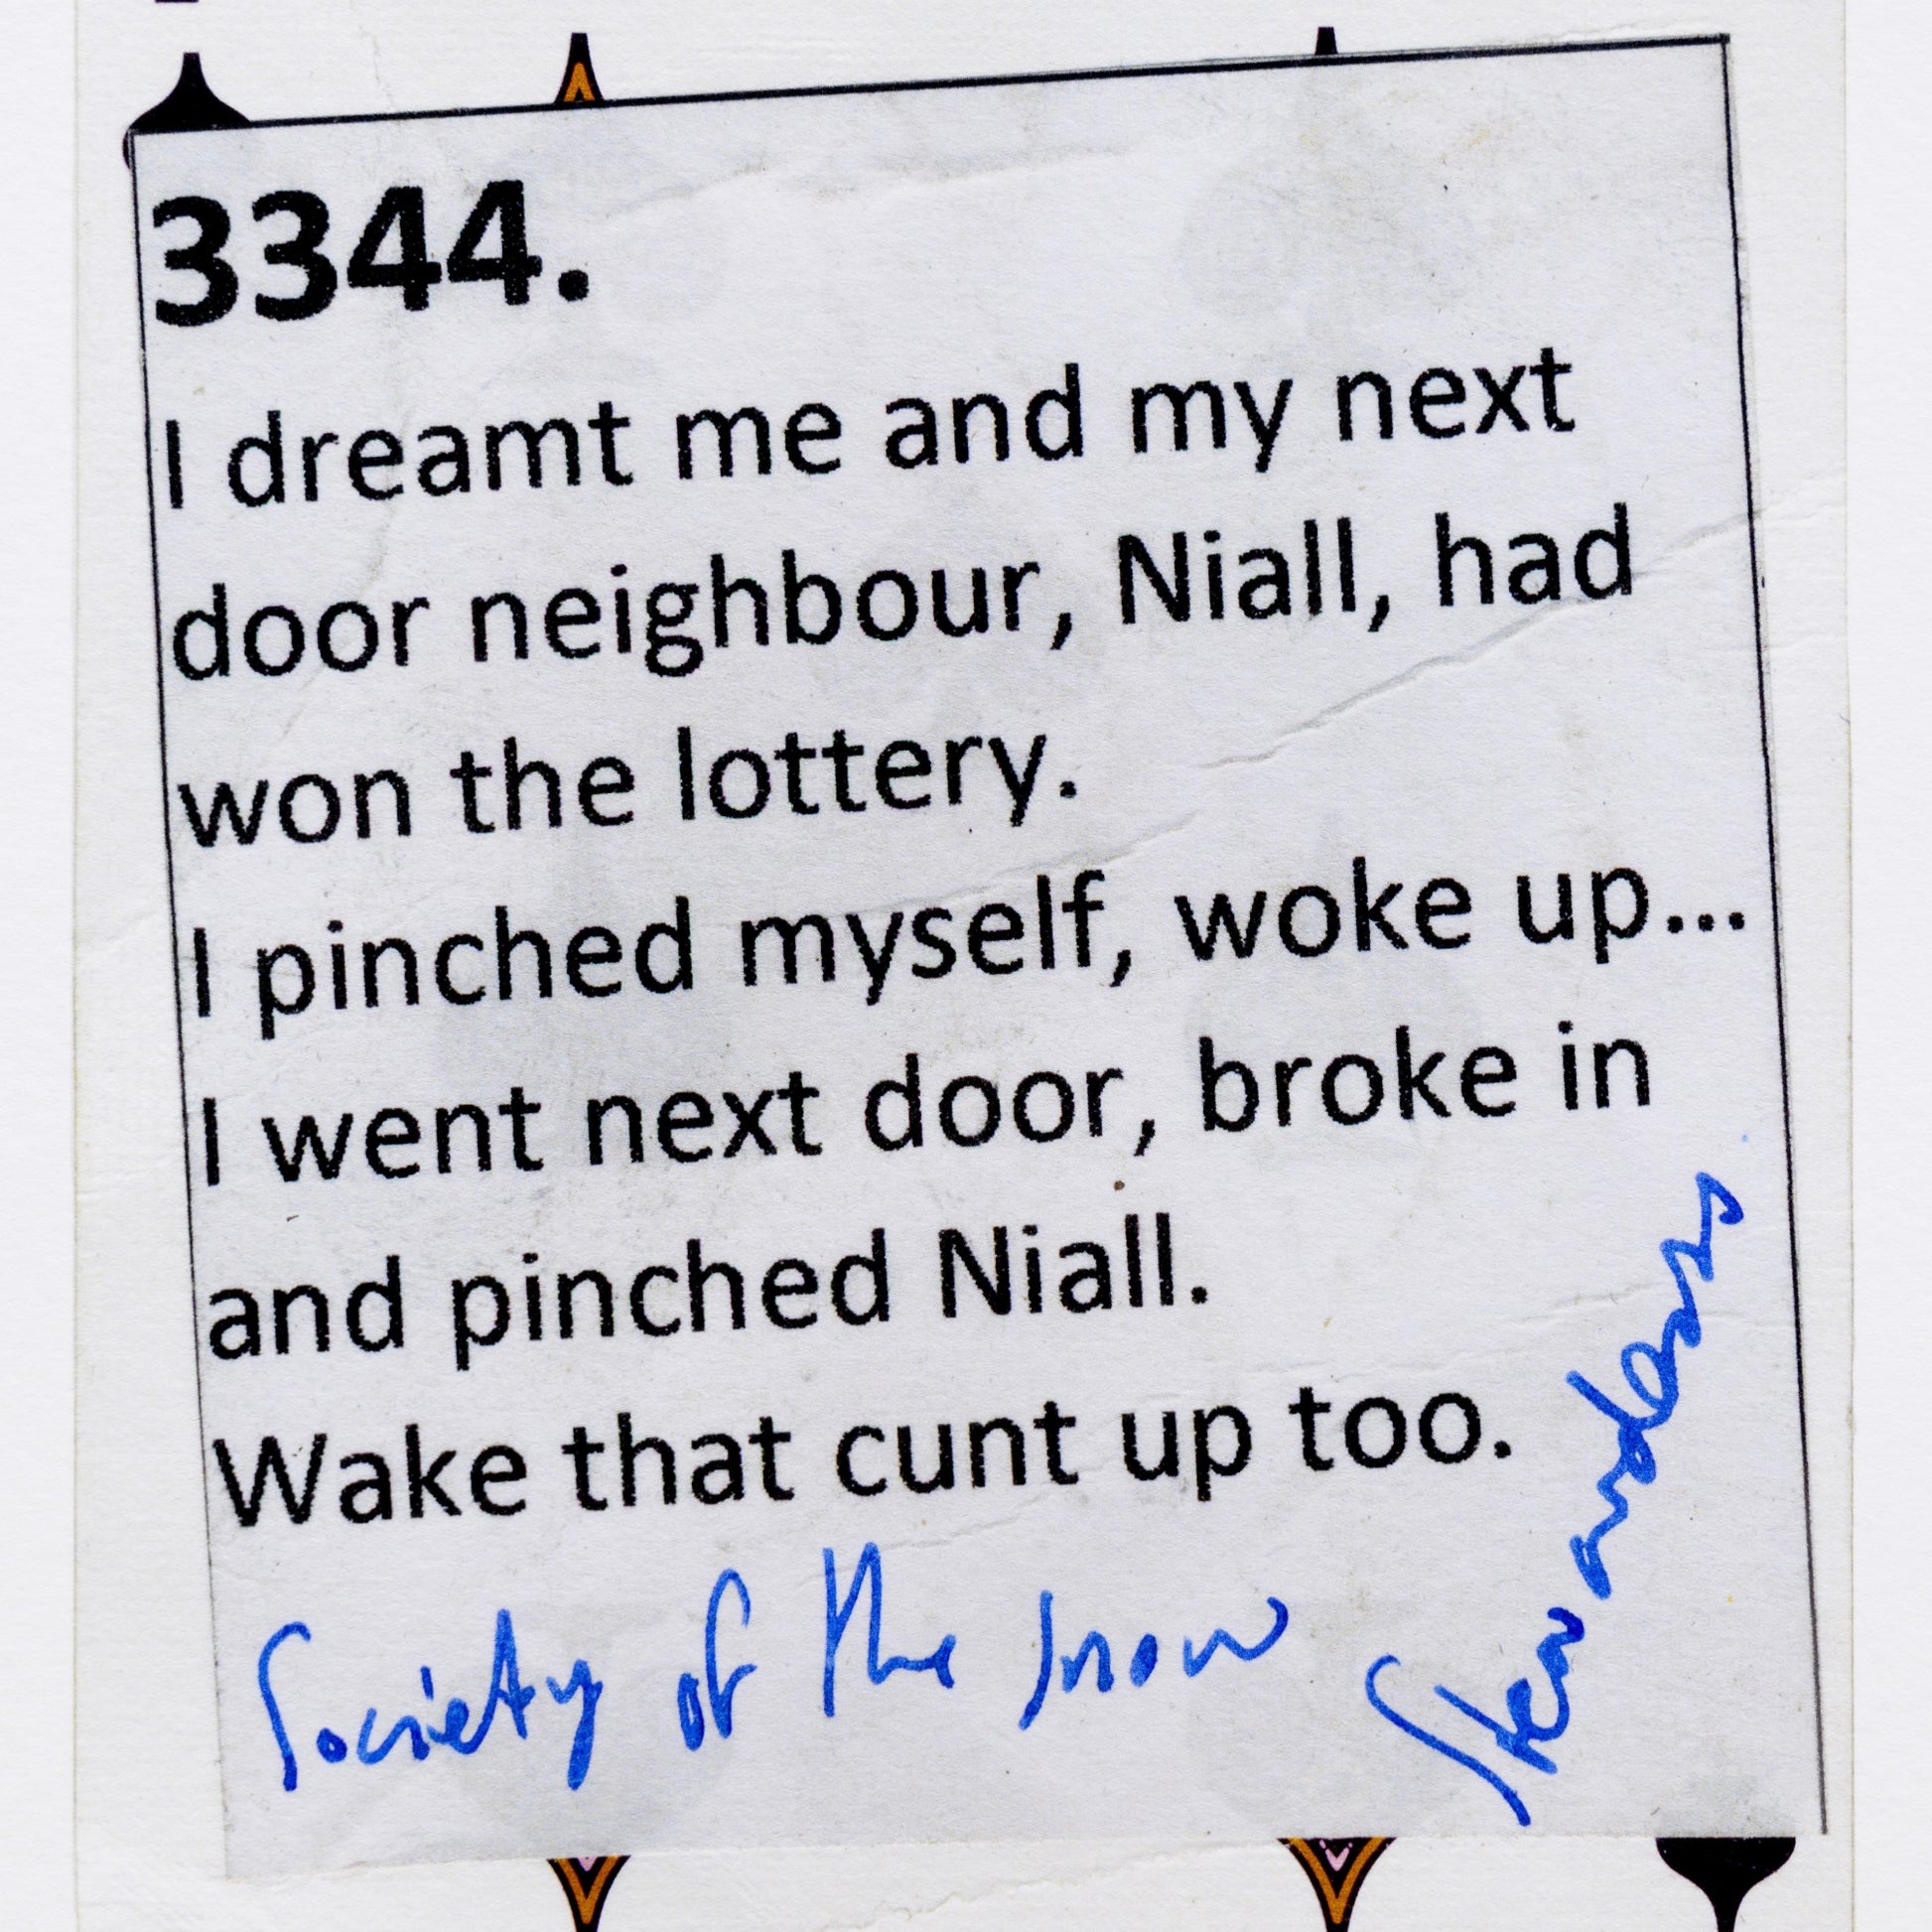 3344.
I dreamt me and my next
door neighbour, Niall, had
won the lottery.
I pinched myself, woke up...
I went next door, broke in
and pinched Niall.
Wake that cunt up too.
Society of the snow